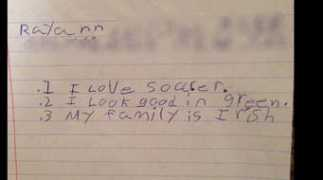 Rayann
.1 I Love Socuer.
.2 I Look good in green.
.3 My family is Irsh